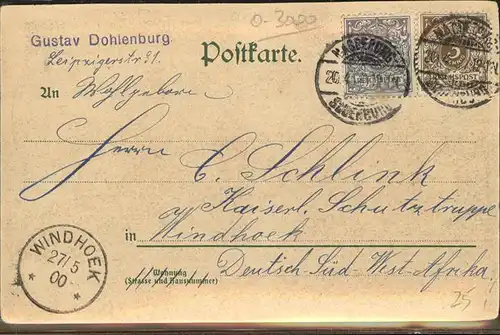 o-3000
Gustav Dohlenburg
Leipzigerstr. 91.
Postkarte.
MAGDEBURG
20.4.
SUDENBURG
3
An Wohlgeboren
Herrn C. Schlink
Kaiserl. Schutztruppe
in Windhoek
Deutsch-Süd-West-Afrika
Wohnung
(Strasse und Hausnummer)
WINDHOEK
27/5
00
25